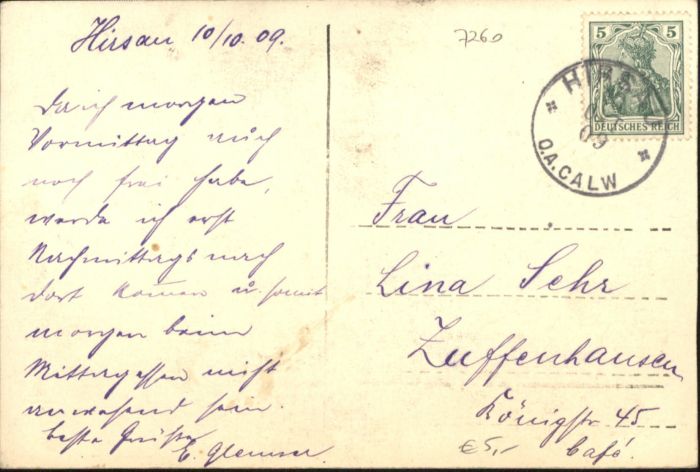 Hirsau 10/10.09.
Da ich morgen
Vormittag auch
noch frei habe,
werde ich erst
Nachmittags nach
dort kommen u. somit
morgen beim
Mittagessen nicht
anwesend sein.
beste Grüße
E.
7260
5 5
DEUTSCHES REICH
HIRS
09
O.A.CALW
Frau
Lina Sehr
Zuffenhausen
Königstr 45
Café.
€5,-